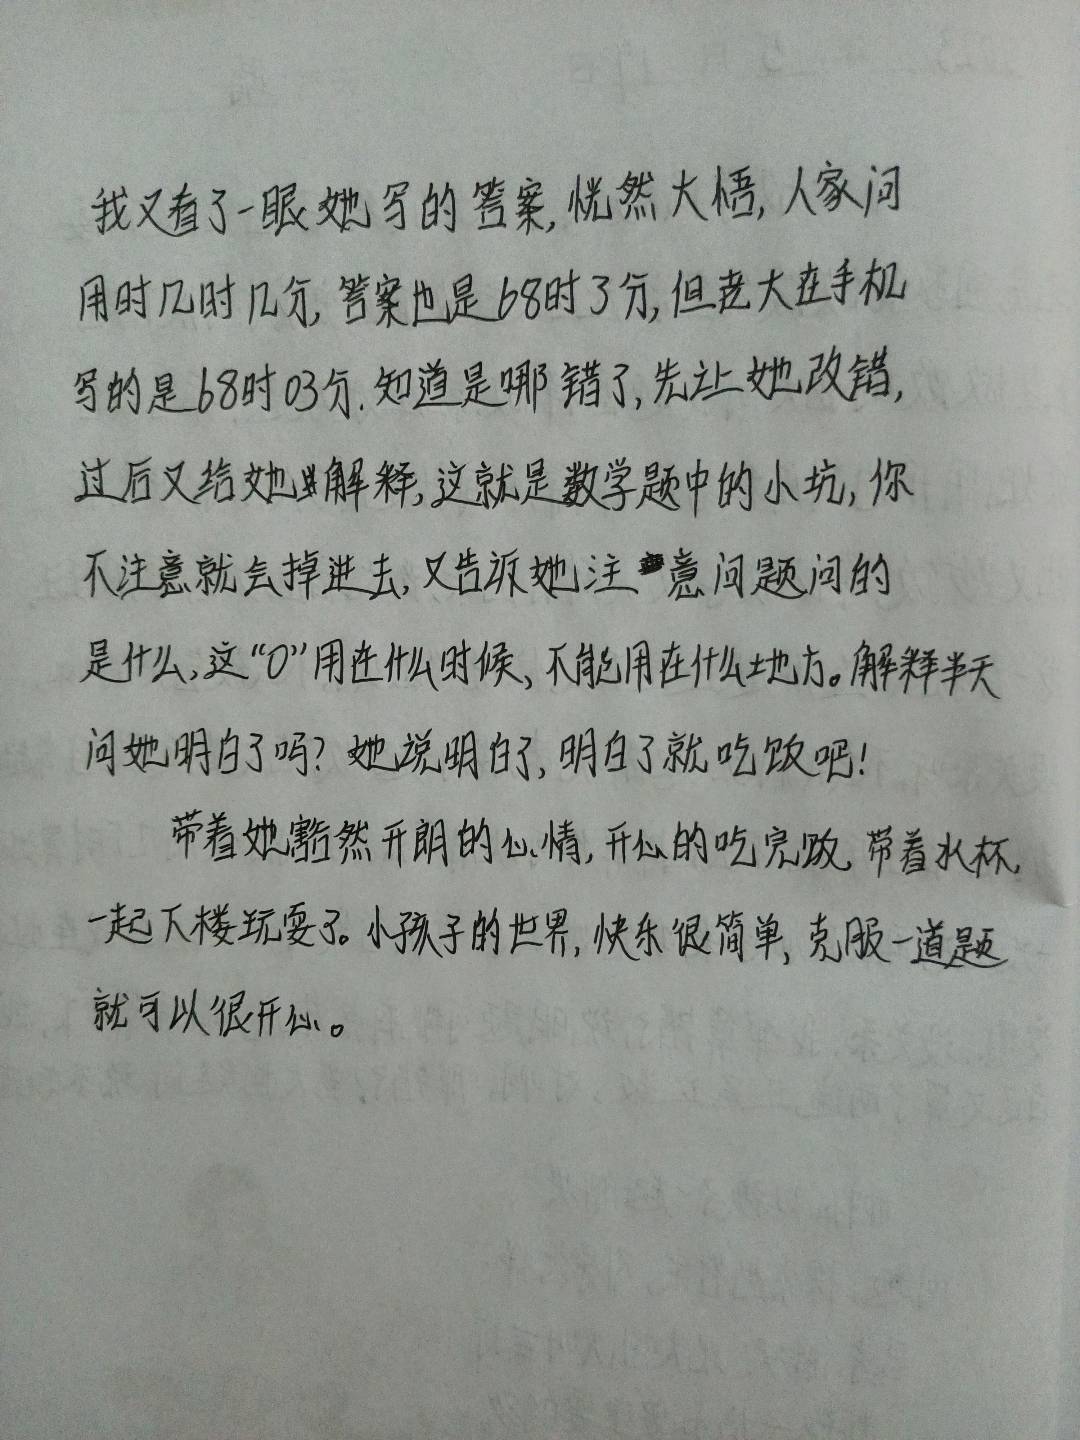 我又看了一眼她写的答案,恍然大悟,人家问
用时几时几分,答案也是68时3分,但老大在手机
写的是68时03分.知道是哪错了,先让她改错,
过后又给她解释,这就是数学题中的小坑,你
不注意就会掉进去,又告诉她注意问题问的
是什么,这“0”用在什么时候、不能用在什么地方。解释半天
问她明白了吗?她说明白了,明白了就吃饭吧!
带着她豁然开朗的心情,开心的吃完饭,带着水杯,
一起下楼玩耍了。小孩子的世界,快乐很简单,克服一道题
就可以很开心。